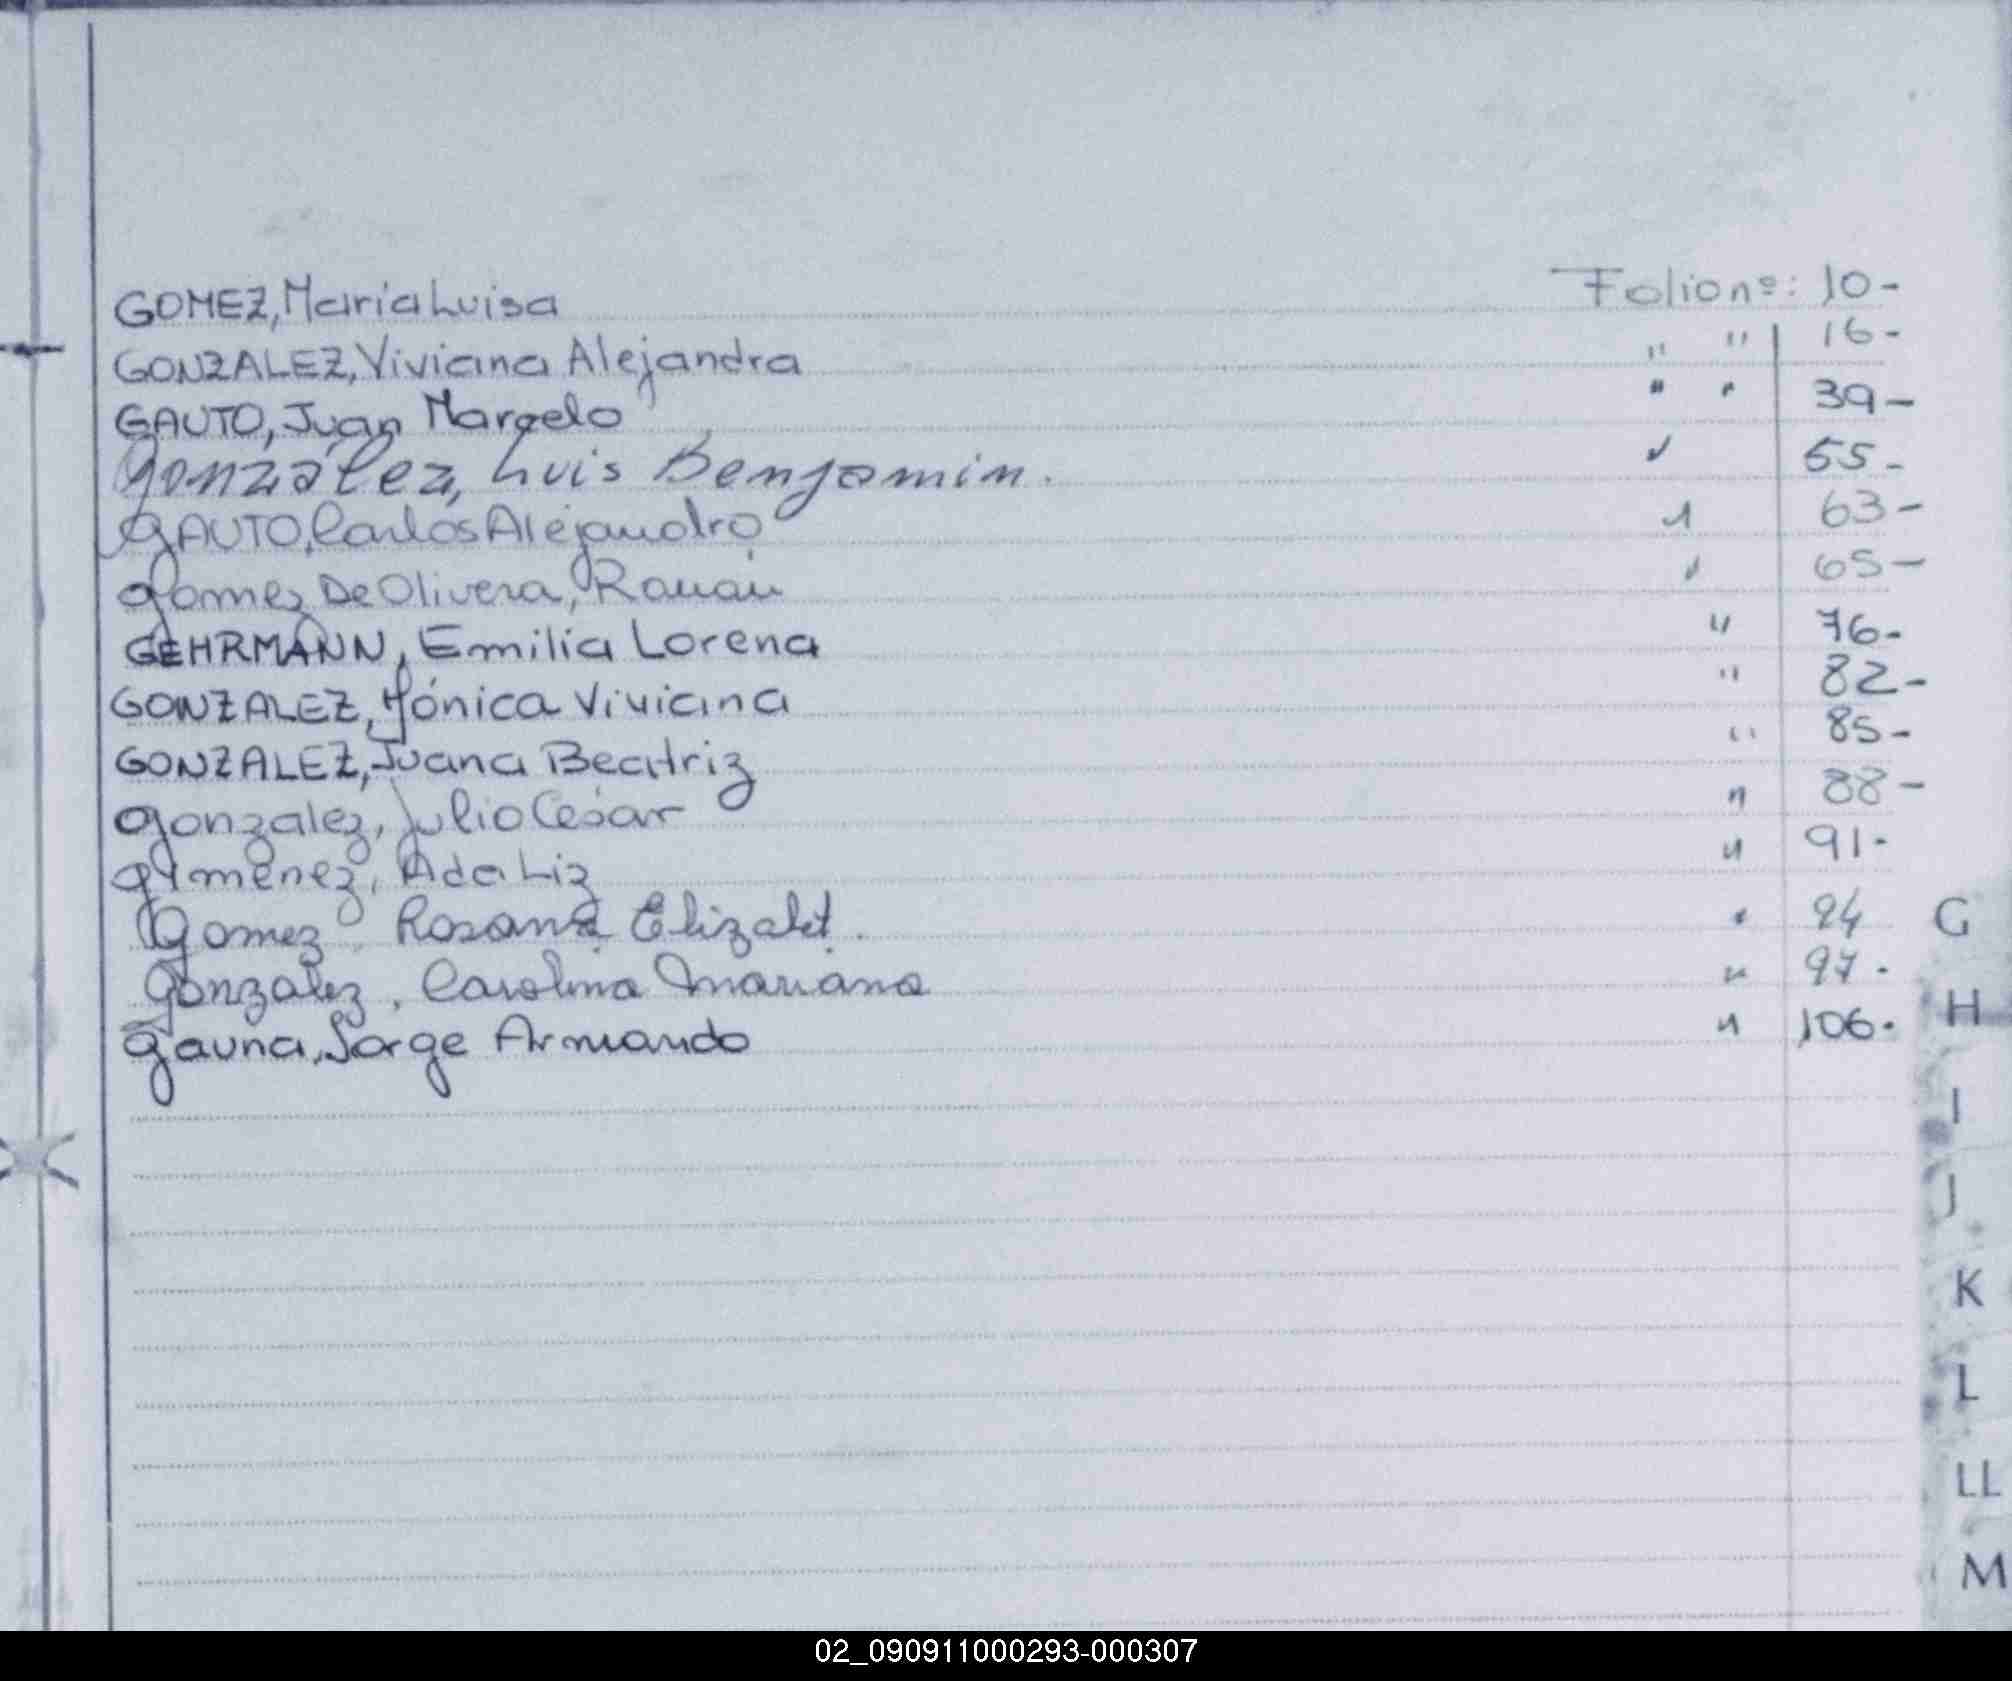 GOMEZ, María Luisa Folio nº: 10-
GONZALEZ, Viviana Alejandra " " 16-
GAUTO, Juan Marcelo " " 39-
González, Luis Benjamin. " 55-
GAUTO, Carlos Alejandro " 63-
Gomez De Olivera, Ramón " 65-
GEHRMANN, Emilia Lorena " 76-
GONZALEZ, Mónica Viviana " 82-
GONZALEZ, Juana Beatriz " 85-
Gonzalez, Julio César " 88-
Gimenez, Ada Liz " 91-
Gomez, Rosana Elizabet. " 94
Gonzalez, Carolina Mariana " 97.
Gauna, Jorge Armando " 106.
G
H
I
J
K
L
LL
M
02_090911000293-000307